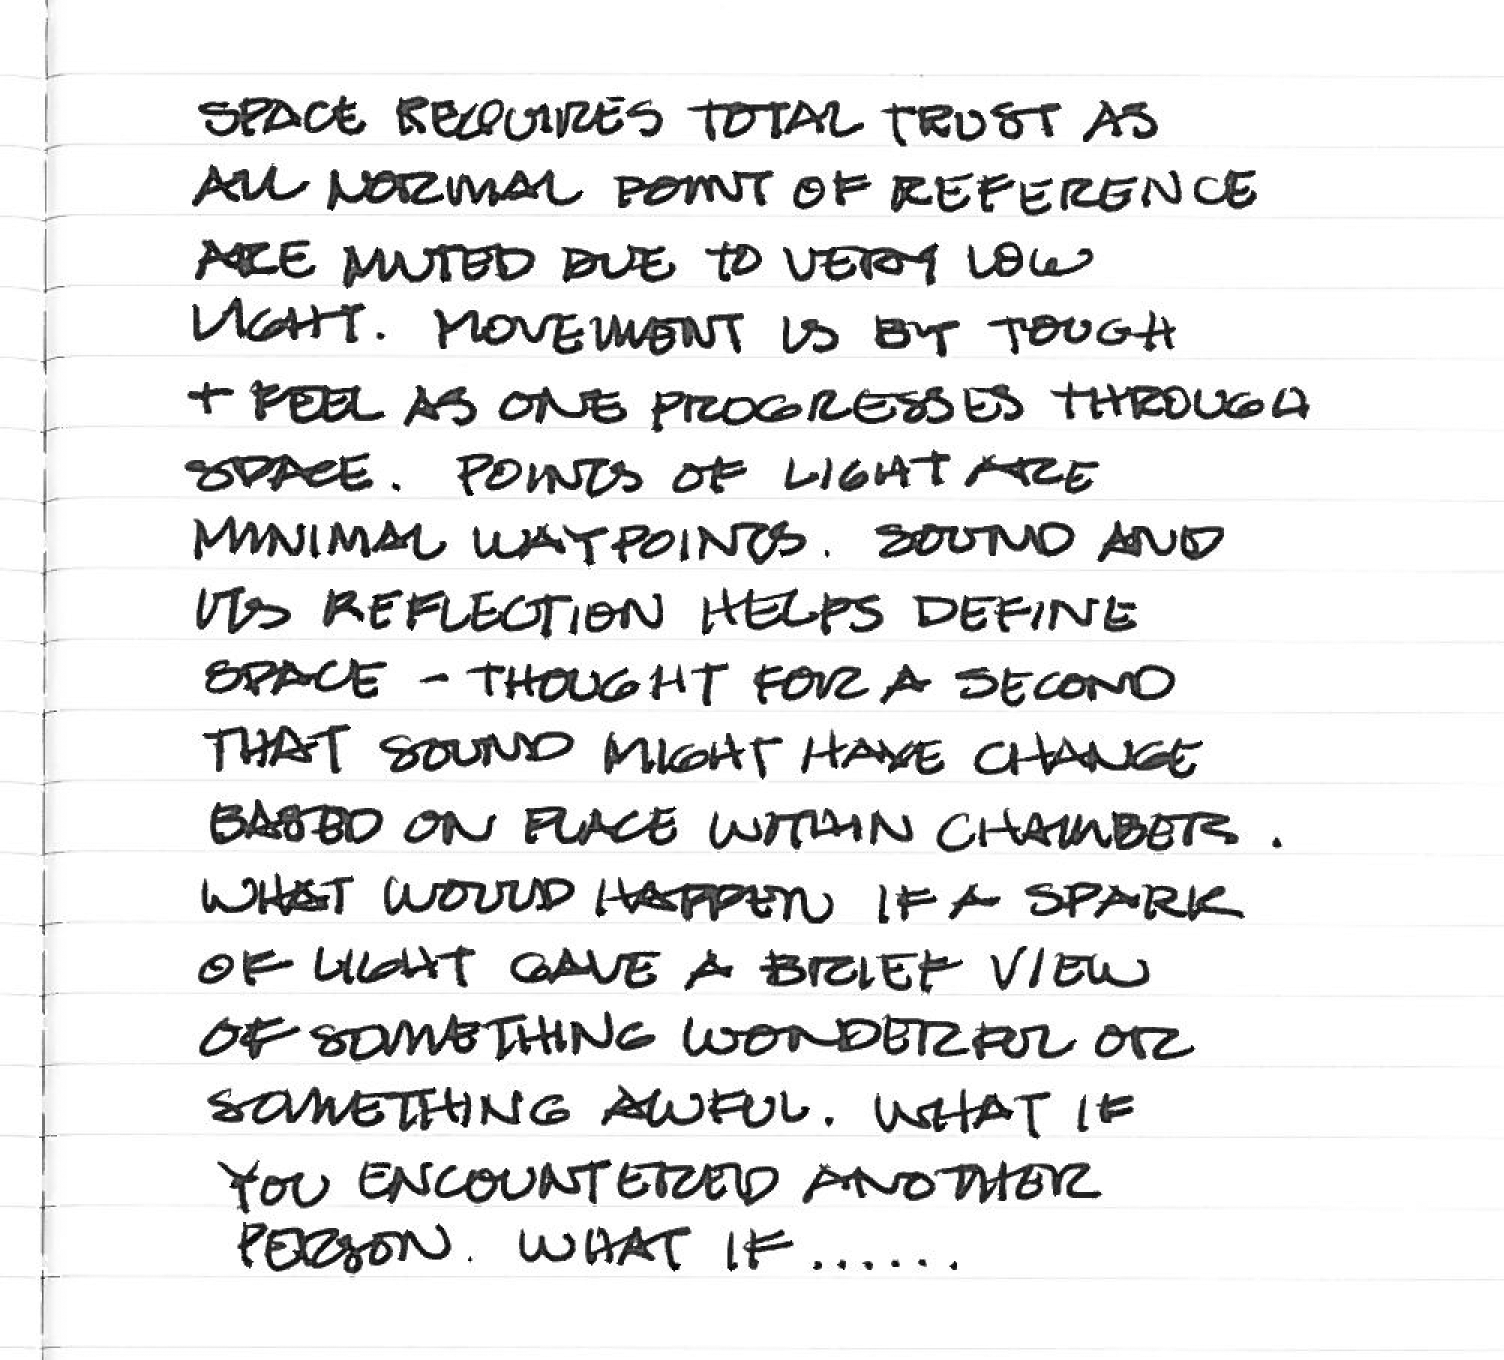 SPACE REQUIRES TOTAL TRUST AS
ALL NORMAL POINT OF REFERENCE
ARE MUTED DUE TO VERY LOW
LIGHT. MOVEMENT IS BY TOUGH
+ FEEL AS ONE PROGRESSES THROUGH
SPACE. POINTS OF LIGHT ARE
MINIMAL WAYPOINTS. SOUND AND
ITS REFLECTION HELPS DEFINE
SPACE - THOUGHT FOR A SECOND
THAT SOUND MIGHT HAVE CHANGE
BASED ON PLACE WITHIN CHAMBERS.
WHAT WOULD HAPPEN IF A SPARK
OF LIGHT GAVE A BRIEF VIEW
OF SOMETHING WONDERFUL OR
SOMETHING AWFUL. WHAT IF
YOU ENCOUNTERED ANOTHER
PERSON. WHAT IF ......